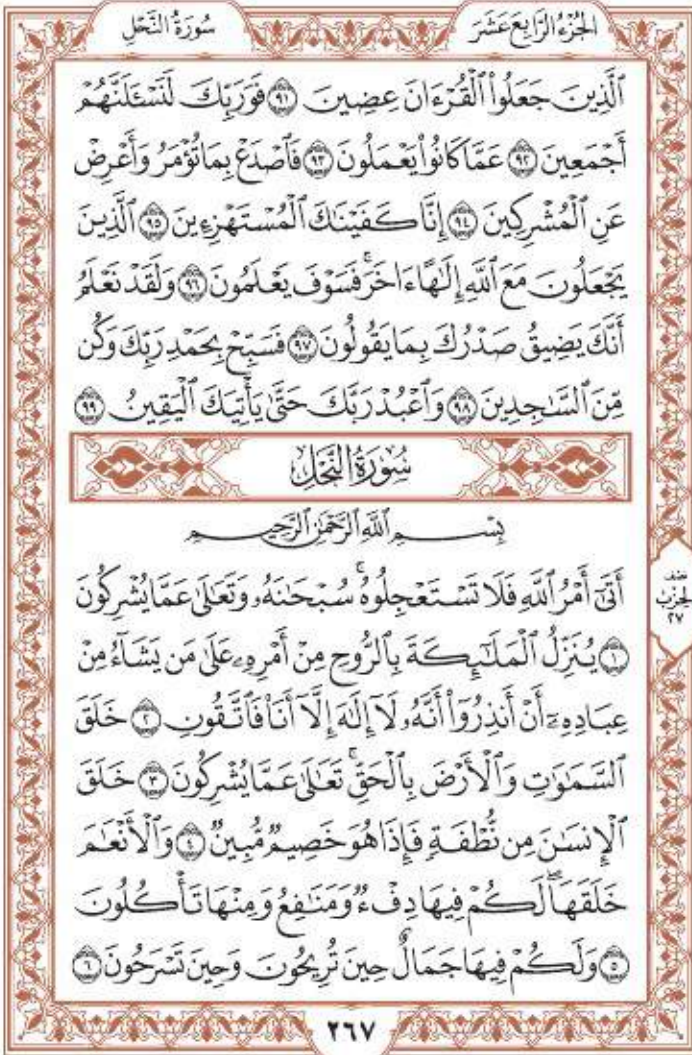 الجُزْءُ الرَّابِعَ عَشَرَ
سُورَةُ النَّحْلِ
ٱلَّذِينَ جَعَلُوا۟ ٱلْقُرْءَانَ عِضِينَ ۝٩١ فَوَرَبِّكَ لَنَسْـَٔلَنَّهُمْ
أَجْمَعِينَ ۝٩٢ عَمَّا كَانُوا۟ يَعْمَلُونَ ۝٩٣ فَٱصْدَعْ بِمَا تُؤْمَرُ وَأَعْرِضْ
عَنِ ٱلْمُشْرِكِينَ ۝٩٤ إِنَّا كَفَيْنَٰكَ ٱلْمُسْتَهْزِءِينَ ۝٩٥ ٱلَّذِينَ
يَجْعَلُونَ مَعَ ٱللَّهِ إِلَٰهًا ءَاخَرَ ۚ فَسَوْفَ يَعْلَمُونَ ۝٩٦ وَلَقَدْ نَعْلَمُ
أَنَّكَ يَضِيقُ صَدْرُكَ بِمَا يَقُولُونَ ۝٩٧ فَسَبِّحْ بِحَمْدِ رَبِّكَ وَكُن
مِّنَ ٱلسَّٰجِدِينَ ۝٩٨ وَٱعْبُدْ رَبَّكَ حَتَّىٰ يَأْتِيَكَ ٱلْيَقِينُ ۝٩٩
سُورَةُ النَّحْلِ
بِسْمِ ٱللَّهِ ٱلرَّحْمَٰنِ ٱلرَّحِيمِ
أَتَىٰٓ أَمْرُ ٱللَّهِ فَلَا تَسْتَعْجِلُوهُ ۚ سُبْحَٰنَهُۥ وَتَعَٰلَىٰ عَمَّا يُشْرِكُونَ
۝١ يُنَزِّلُ ٱلْمَلَٰٓئِكَةَ بِٱلرُّوحِ مِنْ أَمْرِهِۦ عَلَىٰ مَن يَشَآءُ مِنْ
عِبَادِهِۦٓ أَنْ أَنذِرُوٓا۟ أَنَّهُۥ لَآ إِلَٰهَ إِلَّآ أَنَا۠ فَٱتَّقُونِ ۝٢ خَلَقَ
ٱلسَّمَٰوَٰتِ وَٱلْأَرْضَ بِٱلْحَقِّ ۚ تَعَٰلَىٰ عَمَّا يُشْرِكُونَ ۝٣ خَلَقَ
ٱلْإِنسَٰنَ مِن نُّطْفَةٍ فَإِذَا هُوَ خَصِيمٌ مُّبِينٌ ۝٤ وَٱلْأَنْعَٰمَ
خَلَقَهَا ۗ لَكُمْ فِيهَا دِفْءٌ وَمَنَٰفِعُ وَمِنْهَا تَأْكُلُونَ
۝٥ وَلَكُمْ فِيهَا جَمَالٌ حِينَ تُرِيحُونَ وَحِينَ تَسْرَحُونَ ۝٦
نصف
الحزب
٢٧
٢٦٧